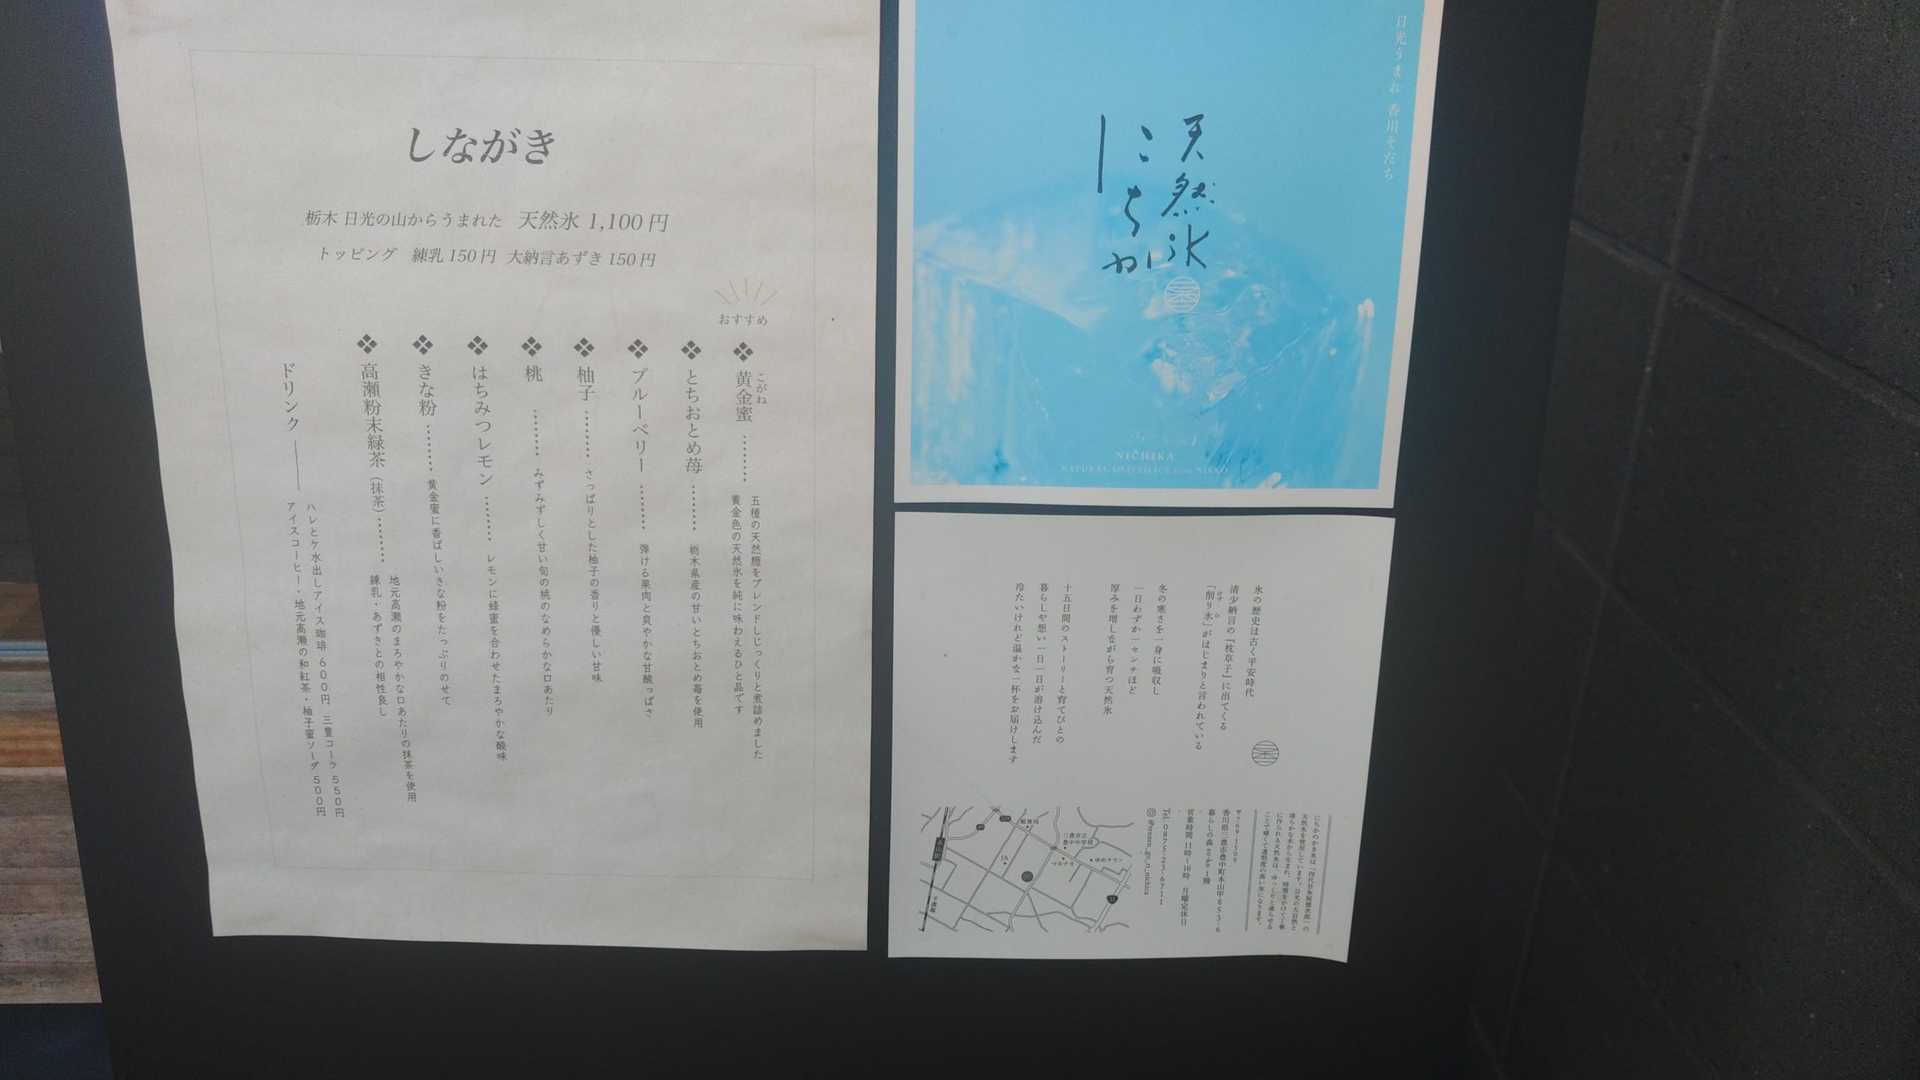 しながき
栃木 日光の山からうまれた 天然氷 1,100円
トッピング 練乳 150円 大納言あずき 150円
おすすめ
黄金蜜
こがね
五種の天然糖をブレンドしじっくりと煮詰めました
黄金色の天然氷を純に味わえるひと品です
とちおとめ苺
栃木県産の甘いとちおとめ苺を使用
ブルーベリー
弾ける果肉と爽やかな甘酸っぱさ
柚子
さっぱりとした柚子の香りと優しい甘味
桃
みずみずしく甘い旬の桃のなめらかな口あたり
はちみつレモン
レモンに蜂蜜を合わせたまろやかな酸味
きな粉
黄金蜜に香ばしいきな粉をたっぷりのせて
高瀬粉末緑茶（抹茶）
地元高瀬のまろやかな口あたりの抹茶を使用
練乳・あずきとの相性良し
ドリンク
ハレとケ水出しアイス珈琲 600円 三豊コーラ 550円
アイスコーヒー・地元高瀬の和紅茶・柚子蜜ソーダ 500円
日光うまれ 香川そだち
天然氷
にちか
NICHIKA
氷の歴史は古く平安時代
清少納言の『枕草子』に出てくる
「削り氷」がはじまりと言われている
冬の寒さを一身に吸収し
一日わずか一センチほど
厚みを増しながら育つ天然氷
十五日間のストーリーと育てびとの
暮らしや想い一日一日が溶け込んだ
冷たいけれど温かな一杯をお届けします
香川県三豊市豊中町本山甲
営業時間 11時〜16時 月曜定休日
Tel. 0875-23-6711
JA
マルナカ
ゆめタウン